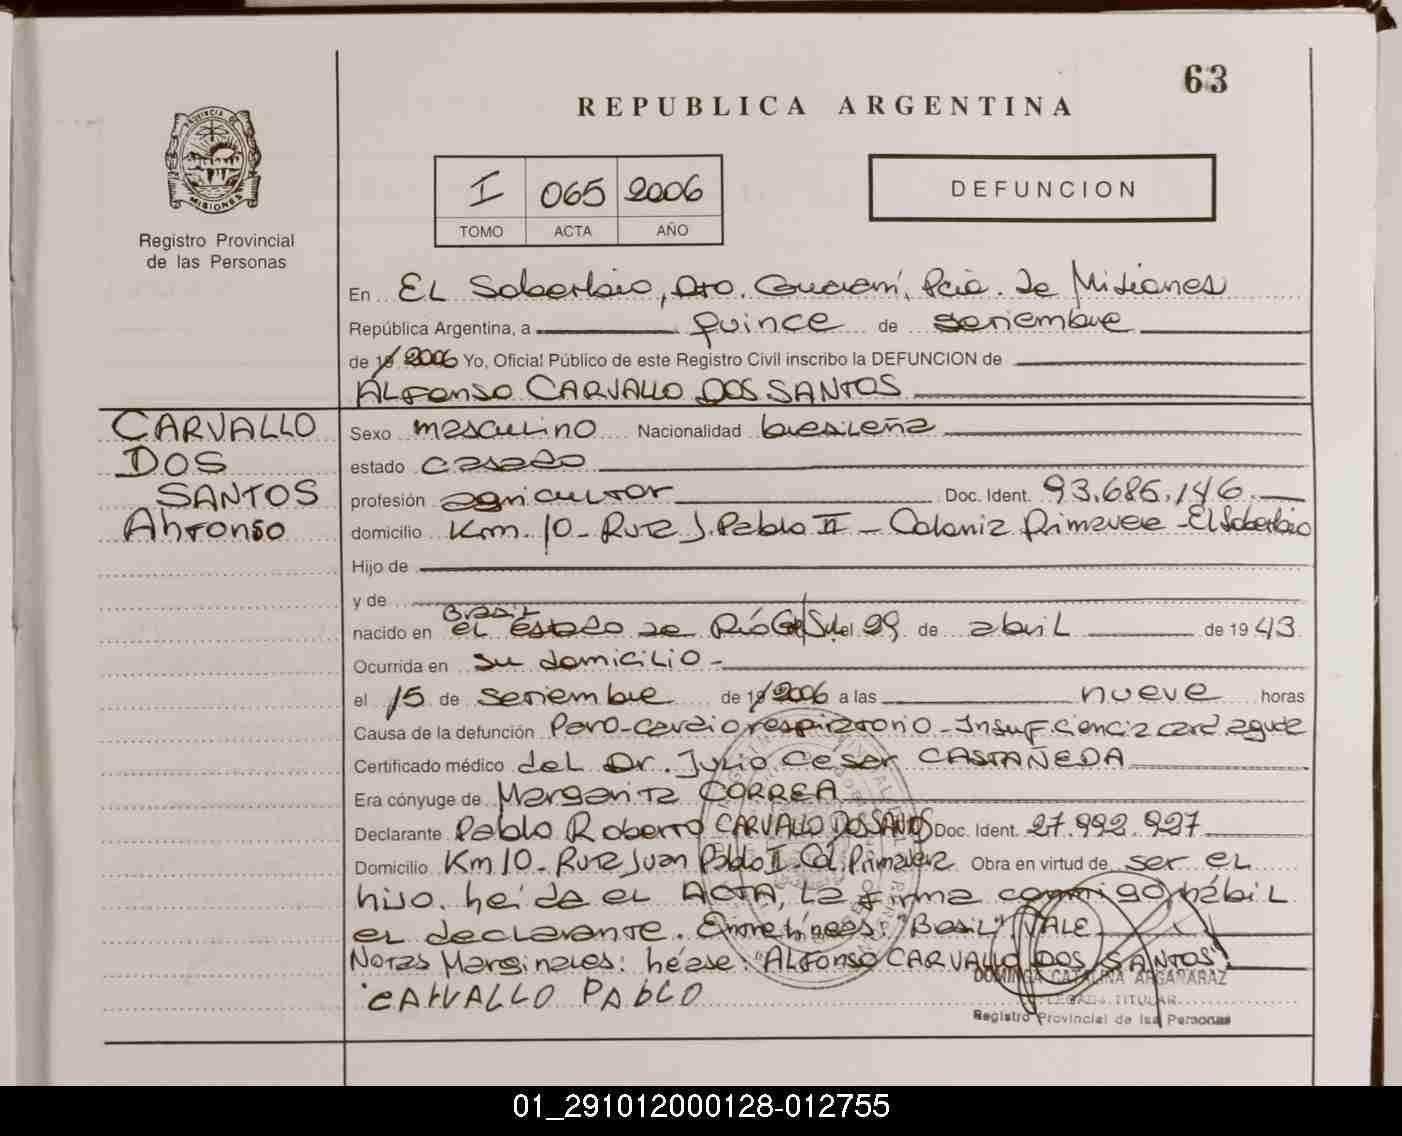 63
REPUBLICA ARGENTINA
PROVINCIA DE
MISIONES
Registro Provincial
de las Personas
I 065 2006
TOMO ACTA AÑO
DEFUNCION
En EL Soberbio, Dto. Guaraní, Pcia. de Misiones
República Argentina, a quince de setiembre
de 19 2006 Yo, Oficial Público de este Registro Civil inscribo la DEFUNCION de
ALFonso CARVALLO DOS SANTOS
CARVALLO
DOS
SANTOS
Alfonso
Sexo masculino Nacionalidad brasileña
estado casado
profesión agricultor Doc. Ident. 93.686.146
domicilio Km. 10 - Ruta J. Pablo II - Colonia Primavera - El Soberbio
Hijo de
y de
Brasil
nacido en el estado de Río G. do Sul el 29 de abril de 1943
Ocurrida en su domicilio -
el 15 de setiembre de 19 2006 a las nueve horas
Causa de la defunción Paro-cardiorespiratorio - Insuficiencia card. aguda
Certificado médico del Dr. Julio Cesar CASTAÑEDA
Era cónyuge de Margarita CORREA
Declarante Pablo Roberto CARVALLO DOS SANTOS Doc. Ident. 27.992.927
Domicilio Km 10 - Ruta Juan Pablo II - Col. Primavera Obra en virtud de ser el
hijo. Leída el ACTA, la firma conmigo, hábil
el declarante. Entre líneas: "Brasil" VALE
Notas Marginales: Léase: "ALFONSO CARVALLO DOS SANTOS".
CARVALLO PABLO
DOMINGA CATALINA ARGAÑARAZ
TITULAR
Registro Provincial de las Personas
01_291012000128-012755